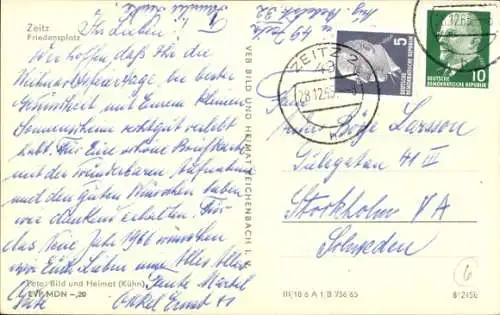 Zeitz
Friedensplatz
Ihr Lieben!
Wir hoffen, daß Ihr die
Weihnachtsfeiertage, bei bester
Gesundheit mit Eurem kleinen
Sonnenschein recht gut verlebt
habt. Für Eure schöne Briefkarte
mit der wunderbaren Aufnahme
und den guten Wünschen haben
wir dankend erhalten. Für
das Neue Jahr 1966 wünschen
wir Euch Lieben alles Gute
Tante
Onkel Ernst
Foto: Bild und Heimat (Kühn)
EVP MDN -,20
VEB BILD UND HEIMAT REICHENBACH i. V.
49 Zeitz
ZEITZ 2
49
28.12.65
5
DEUTSCHE
DEMOKRATISCHE REPUBLIK
12.65
DEUTSCHE
DEMOKRATISCHE REPUBLIK
10
Larsson
41 III
Stockholm VA
Schweden
III/18/6 A 1/B 756/65
6